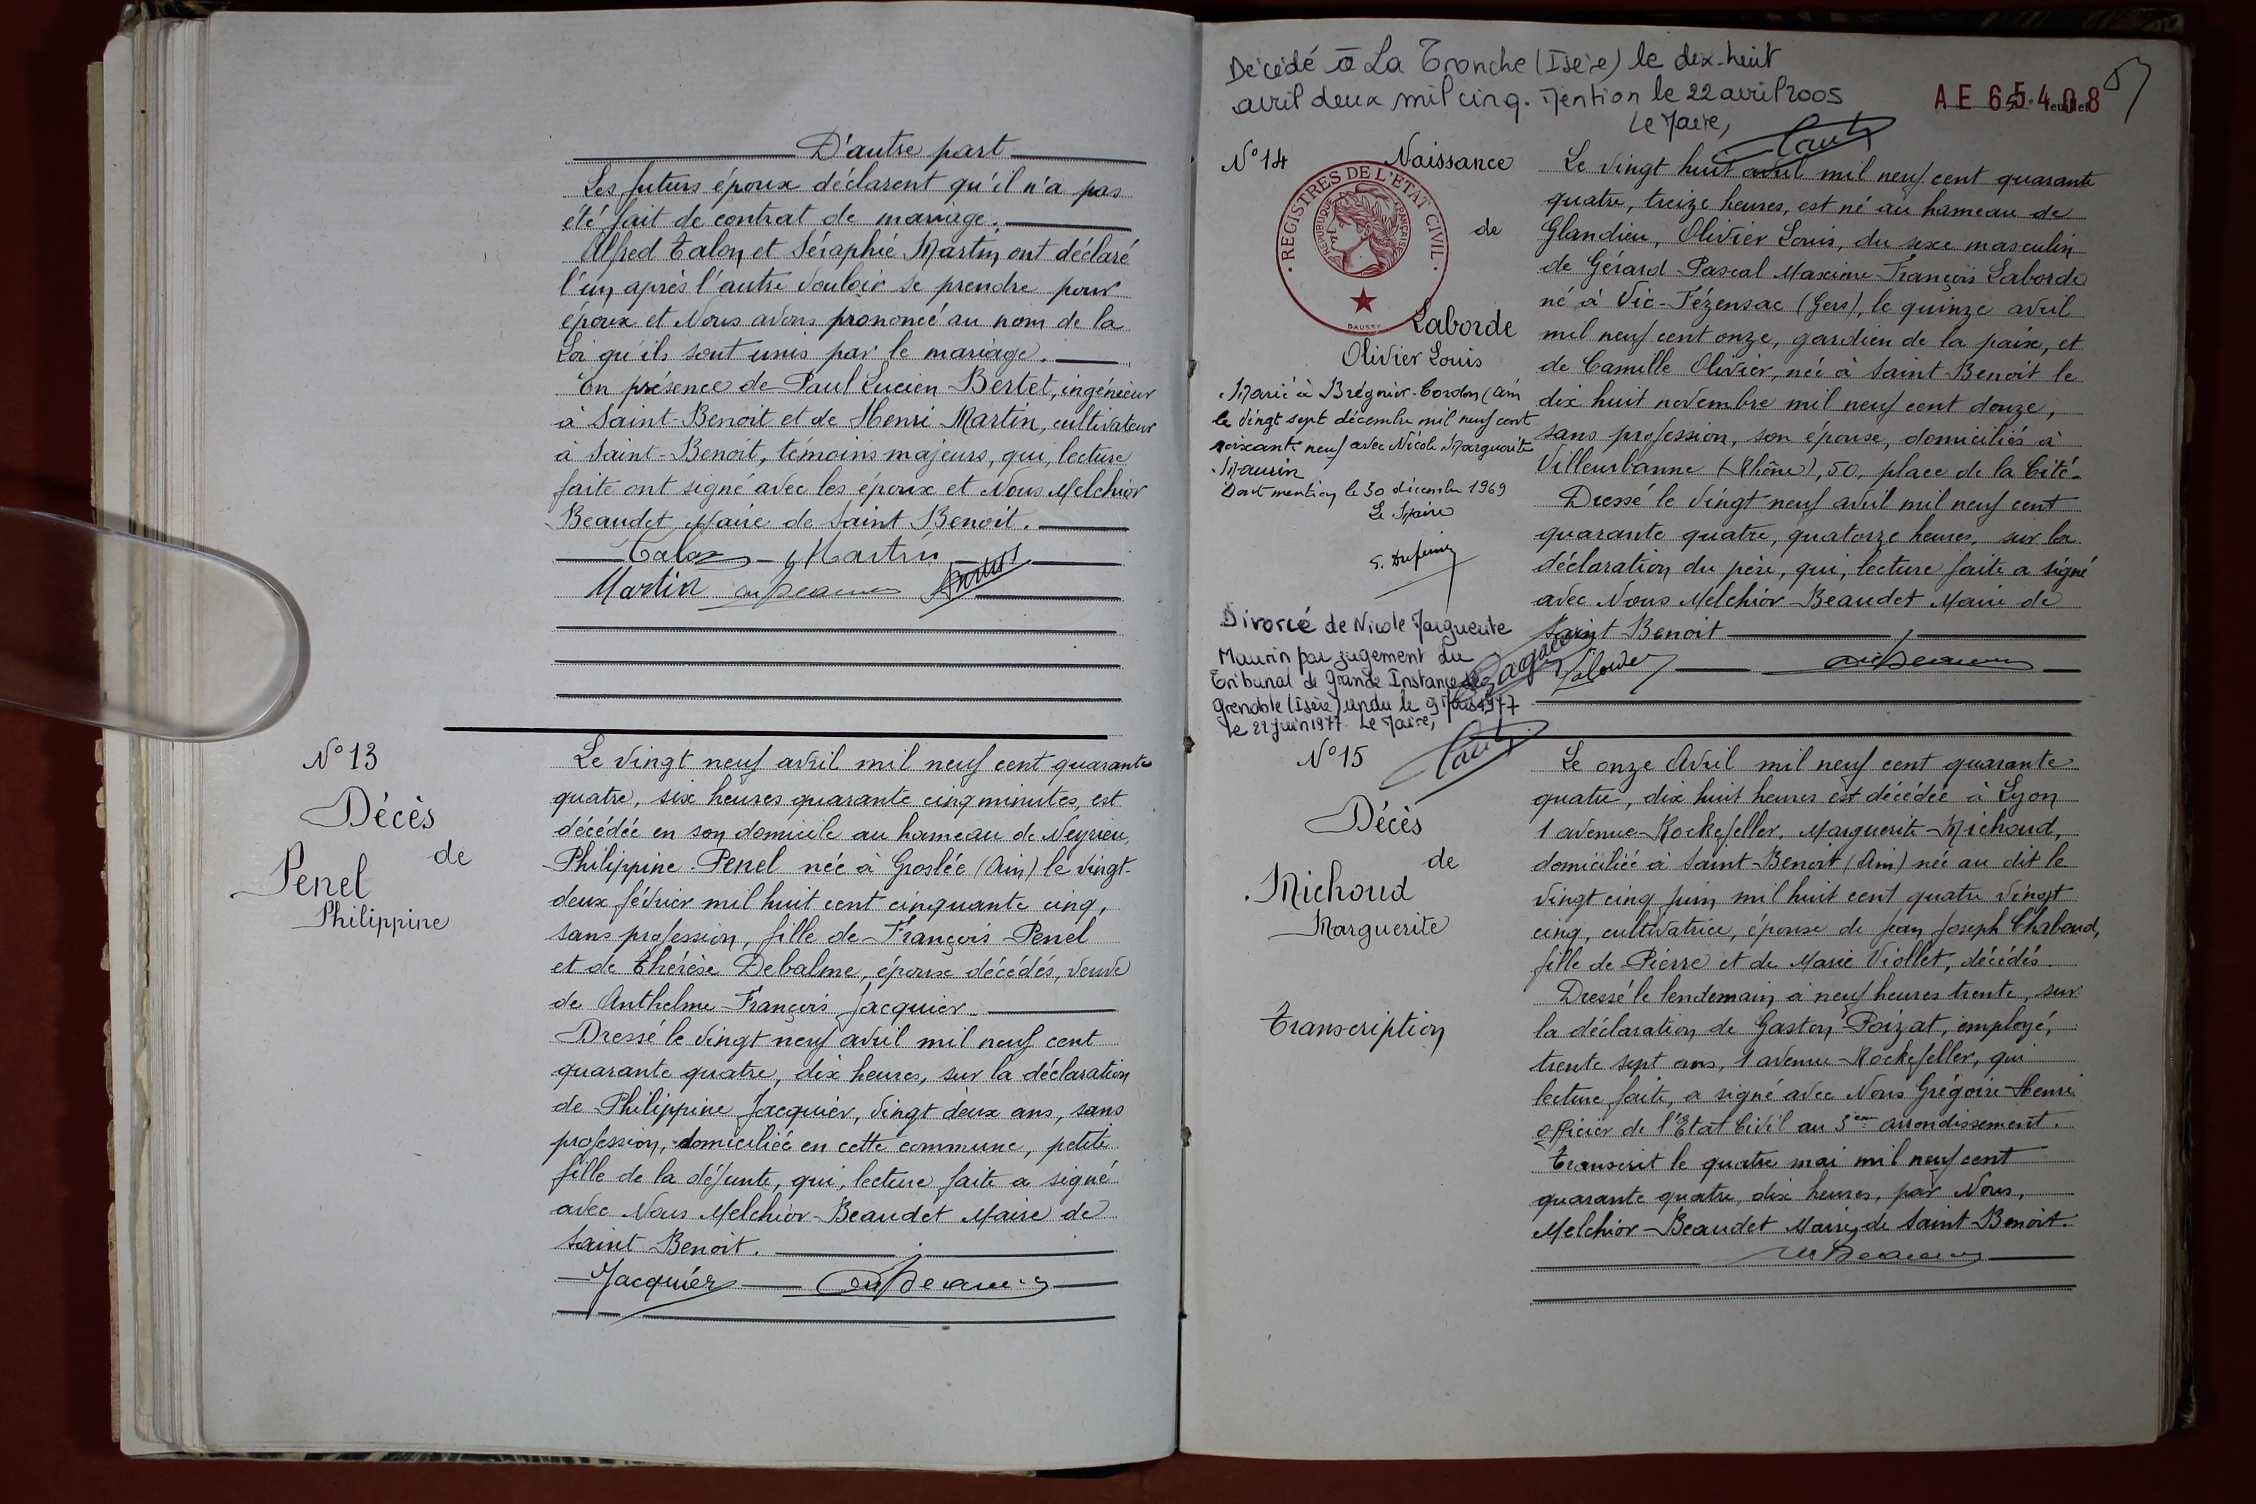 D'autre part
Les futurs époux déclarent qu'il n'a pas
été fait de contrat de mariage.
Alfred Talon et Séraphie Martin ont déclaré
l'un après l'autre vouloir se prendre pour
époux et Nous avons prononcé au nom de la
Loi qu'ils sont unis par le mariage.
En présence de Paul Lucien Bertet, ingénieur
à Saint-Benoit et de Henri Martin, cultivateur
à Saint-Benoit, témoins majeurs, qui, lecture
faite ont signé avec les époux et Nous Melchior
Beaudet, Maire de Saint Benoit.
Talon Martin
Martin
N° 13
Décès
de
Penel
Philippine
Le vingt neuf avril mil neuf cent quarante
quatre, six heures quarante cinq minutes, est
décédée en son domicile au hameau de Neyrieu,
Philippine Penel née à Groslée (Ain) le vingt-
deux février mil huit cent cinquante cinq,
sans profession, fille de François Penel
et de Thérèse Debalme, époux décédés, veuve
de Anthelme François Jacquier.
Dressé le vingt neuf avril mil neuf cent
quarante quatre, dix heures, sur la déclaration
de Philippine Jacquier, vingt deux ans, sans
profession, domiciliée en cette commune, petite
fille de la défunte, qui, lecture faite a signé
avec Nous Melchior Beaudet Maire de
Saint Benoit.
Jacquier
Décédé à La Tronche (Isère) le dix-huit
avril deux mil cinq. Mention le 22 avril 2005
Le Maire,
AE 65408
feuillet
N° 14
Naissance
REGISTRES DE L'ETAT CIVIL
REPUBLIQUE FRANÇAISE
DAUSSY
de
Laborde
Olivier Louis
Marié à Brégnier-Cordon (Ain
le vingt sept décembre mil neuf cent
soixante neuf avec Nicole Marguerite
Maurin
Dont mention le 30 décembre 1969
Le Maire
Divorcé de Nicole Marguerite
Maurin par jugement du
Tribunal de Grande Instance de
Grenoble (Isère) rendu le 9 Mars 1977
le 22 juin 1977. Le Maire,
Le vingt huit avril mil neuf cent quarante
quatre, treize heures, est né au hameau de
Glandieu, Olivier Louis, du sexe masculin
de Gérard Pascal Maxime François Laborde
né à Vic-Fézensac (Gers), le quinze avril
mil neuf cent onze, gardien de la paix, et
de Camille Olivier, née à Saint Benoit le
dix huit novembre mil neuf cent douze,
sans profession, son épouse, domiciliés à
Villeurbanne (Rhône), 50, place de la Cité.
Dressé le vingt neuf avril mil neuf cent
quarante quatre, quatorze heures, sur la
déclaration du père, qui, lecture faite a signé
avec Nous Melchior Beaudet Maire de
Saint Benoit
N° 15
Décès
de
Michoud
Marguerite
Transcription
Le onze Avril mil neuf cent quarante
quatre, dix huit heures est décédée à Lyon
1 avenue Rockefeller, Marguerite Michoud,
domiciliée à Saint-Benoit (Ain) née au dit le
vingt cinq juin mil huit cent quatre vingt
cinq, cultivatrice, épouse de Jean Joseph Chaboud,
fille de Pierre et de Marie Viollet, décédés.
Dressé le lendemain à neuf heures trente, sur
la déclaration de Gaston Poizat, employé,
trente sept ans, 1 avenue Rockefeller, qui
lecture faite, a signé avec Nous Grégoire Henri
officier de l'Etat Civil au 3ème arrondissement.
Transcrit le quatre mai mil neuf cent
quarante quatre, dix heures, par Nous,
Melchior Beaudet Maire de Saint Benoit.